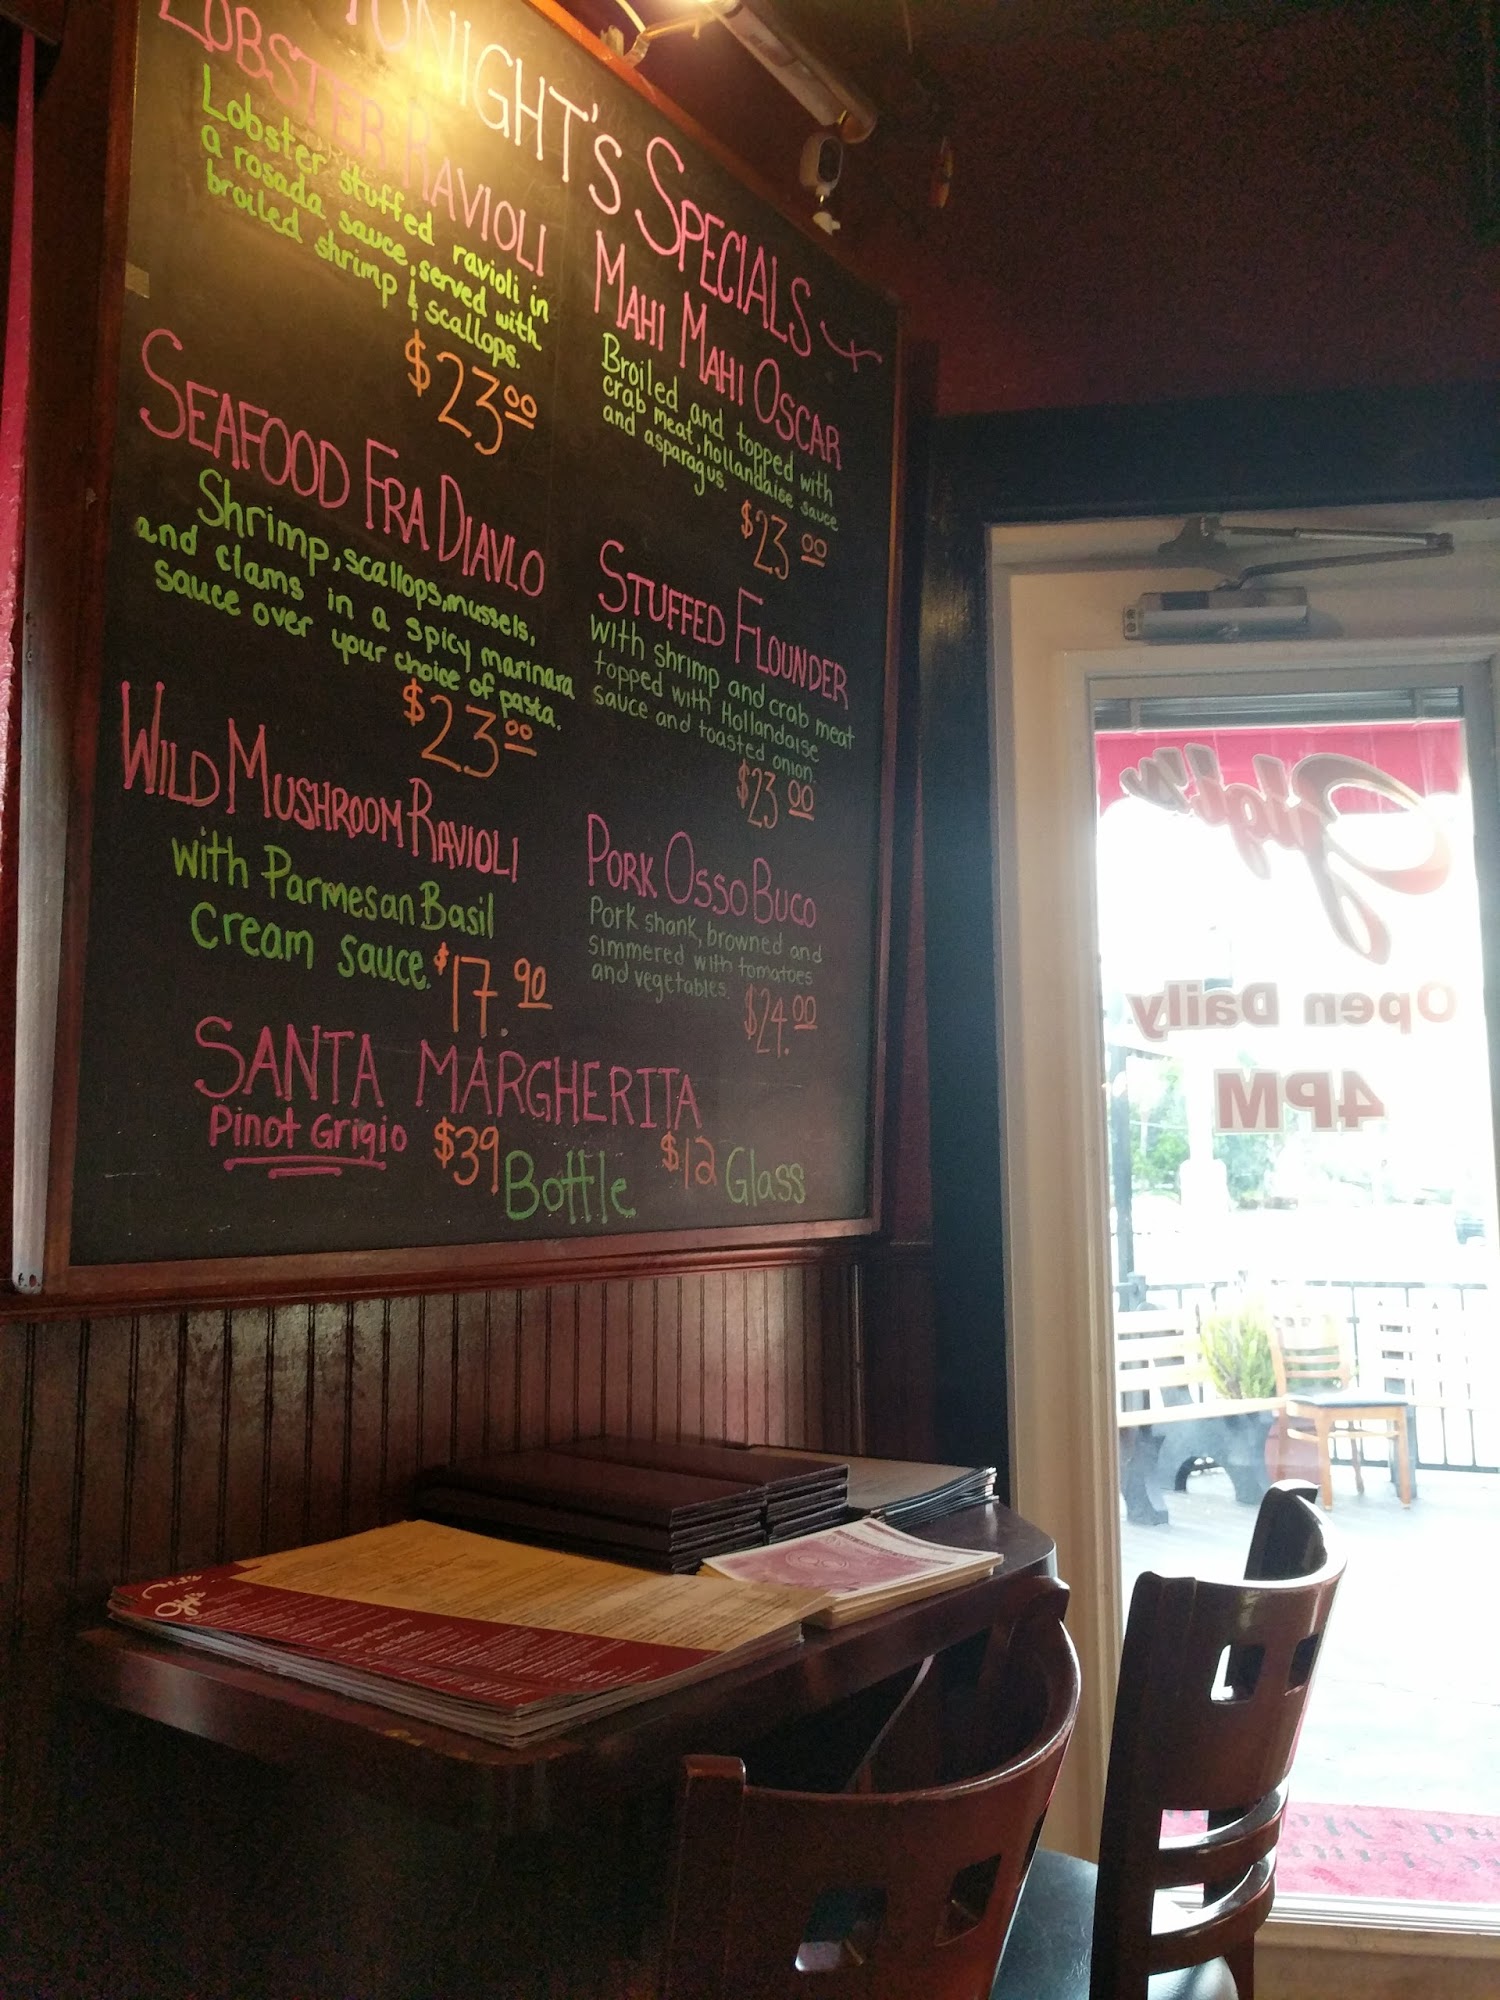 TONIGHT'S SPECIALS
LOBSTER RAVIOLI
Lobster stuffed ravioli in
a rosada sauce, served with
broiled shrimp & scallops.
$23.00
SEAFOOD FRA DIAVLO
Shrimp, scallops, mussels,
and clams in a spicy marinara
sauce over your choice of pasta.
$23.00
WILD MUSHROOM RAVIOLI
with Parmesan Basil
cream sauce.
$17.90
MAHI MAHI OSCAR
Broiled and topped with
crab meat, hollandaise sauce
and asparagus.
$23.00
STUFFED FLOUNDER
with shrimp and crab meat
topped with Hollandaise
sauce and toasted onion.
$23.00
PORK OSSO BUCO
Pork shank, browned and
simmered with tomatoes
and vegetables.
$24.00
SANTA MARGHERITA
Pinot Grigio $39 Bottle $12 Glass
Gigi's
Open Daily
4PM
Gigi's